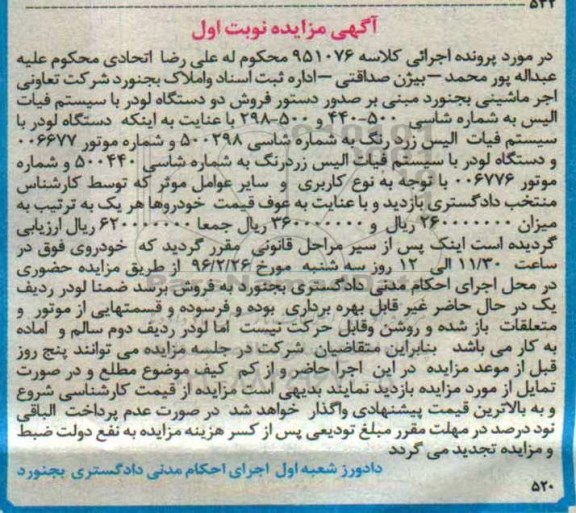 ۵۲۲
آگهی مزایده نوبت اول
در مورد پرونده اجرائی کلاسه ۹۵۱۰۷۶ محکوم له علی رضا اتحادی محکوم علیه
عبداله پور محمد – بیژن صداقتی – اداره ثبت اسناد واملاک بجنورد شرکت تعاونی
اجر ماشینی بجنورد مبنی بر صدور دستور فروش دو دستگاه لودر با سیستم فیات
الیس به شماره شاسی ۵۰۰-۴۴۰ و ۵۰۰-۲۹۸ با عنایت به اینکه دستگاه لودر با
سیستم فیات الیس زرد رنگ به شماره شاسی ۵۰۰۲۹۸ و شماره موتور ۰۰۶۶۷۷
و دستگاه لودر با سیستم فیات الیس زردرنگ به شماره شاسی ۵۰۰۴۴۰ و شماره
موتور ۰۰۶۷۷۶ با توجه به نوع کاربری و سایر عوامل موثر که توسط کارشناس
منتخب دادگستری بازدید و با عنایت به عوف قیمت خودروها هر یک به ترتیب به
میزان ۲۶۰۰۰۰۰۰۰ ریال و ۳۶۰۰۰۰۰۰۰ ریال جمعا ۶۲۰۰۰۰۰۰۰ ریال ارزیابی
گردیده است اینک پس از سیر مراحل قانونی مقرر گردید که خودروی فوق در
ساعت ۱۱/۳۰ الی ۱۲ روز سه شنبه مورخ ۹۶/۲/۲۶ از طریق مزایده حضوری
در محل اجرای احکام مدنی دادگستری بجنورد به فروش برسد ضمنا لودر ردیف
یک در حال حاضر غیر قابل بهره برداری بوده و فرسوده و قسمتهایی از موتور و
متعلقات باز شده و روشن وقابل حرکت نیست اما لودر ردیف دوم سالم و اماده
به کار می باشد بنابراین متقاضیان شرکت در جلسه مزایده می توانند پنج روز
قبل از موعد مزایده در این اجرا حاضر و از کم کیف موضوع مطلع و در صورت
تمایل از مورد مزایده بازدید نمایند بدیهی است مزایده از قیمت کارشناسی شروع
و به بالاترین قیمت پیشنهادی واگذار خواهد شد در صورت عدم پرداخت الباقی
نود درصد در مهلت مقرر مبلغ تودیعی پس از کسر هزینه مزایده به نفع دولت ضبط
و مزایده تجدید می گردد
دادورز شعبه اول اجرای احکام مدنی دادگستری بجنورد
۵۲۰